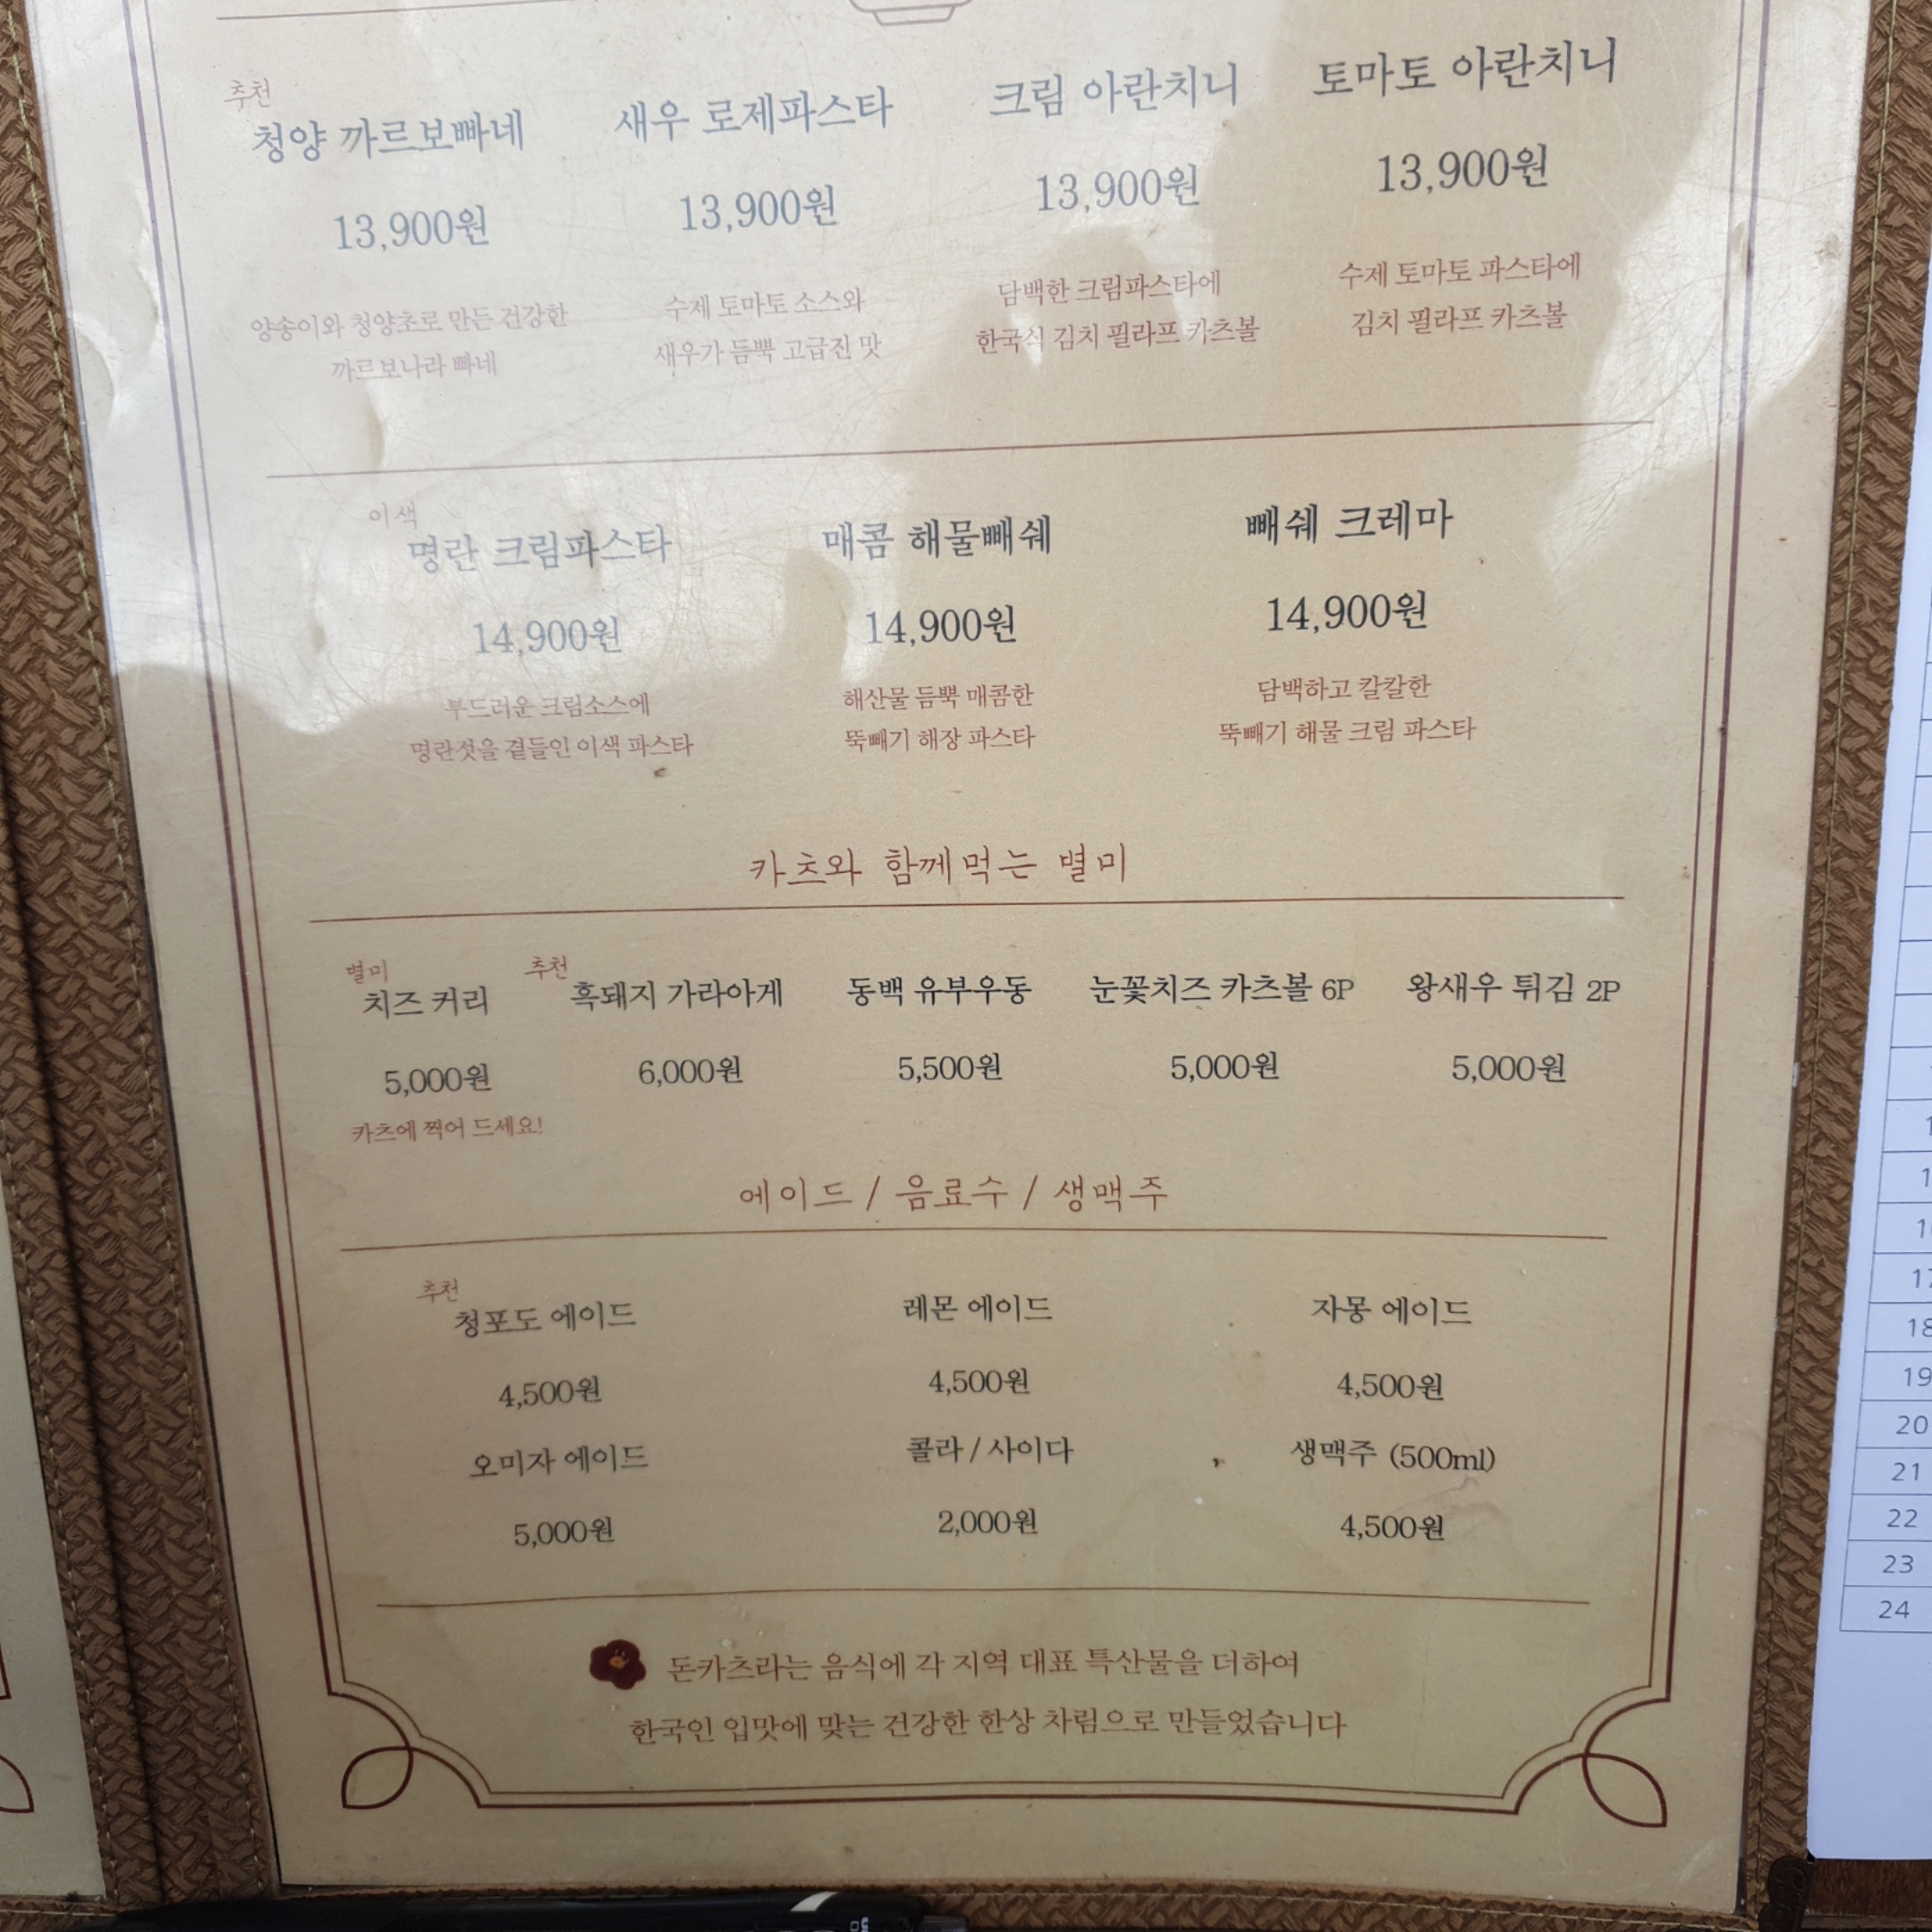 추천
청양 까르보빠네
새우 로제파스타
크림 아란치니
토마토 아란치니
13,900원
13,900원
13,900원
13,900원
양송이와 청양초로 만든 건강한
까르보나라 빠네
수제 토마토 소스와
새우가 듬뿍 고급진 맛
담백한 크림파스타에
한국식 김치 필라프 카츠볼
수제 토마토 파스타에
김치 필라프 카츠볼
이색
명란 크림파스타
매콤 해물빼쉐
빼쉐 크레마
14,900원
14,900원
14,900원
부드러운 크림소스에
명란젓을 곁들인 이색 파스타
해산물 듬뿍 매콤한
뚝빼기 해장 파스타
담백하고 칼칼한
뚝빼기 해물 크림 파스타
카츠와 함께먹는 별미
별미
치즈 커리
추천
흑돼지 가라아게
동백 유부우동
눈꽃치즈 카츠볼 6P
왕새우 튀김 2P
5,000원
6,000원
5,500원
5,000원
5,000원
카츠에 찍어 드세요!
에이드 / 음료수 / 생맥주
추천
청포도 에이드
레몬 에이드
자몽 에이드
4,500원
4,500원
4,500원
오미자 에이드
콜라 / 사이다
생맥주 (500ml)
5,000원
2,000원
4,500원
돈카츠라는 음식에 각 지역 대표 특산물을 더하여
한국인 입맛에 맞는 건강한 한상 차림으로 만들었습니다
18
19
20
21
22
23
24